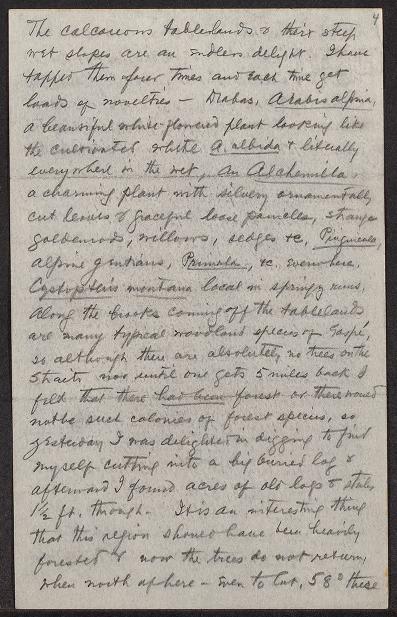 4
The calcareous tablelands & their steep
wet slopes are an endless delight. I have
tapped them four times and each time get
loads of novelties — Drabas, Arabis alpina,
a beautiful white-flowered plant looking like
the cultivated white A. albida & literally
everywhere in the wet, an Alchemilla,
a charming plant with silvery ornamentally
cut leaves & graceful loose panicles, strange
goldenrods, willows, sedges &c, Pinguicula,
alpine gentians, Primula, &c. everywhere.
Cystopteris montana local in springy runs.
Along the brooks coming off the tablelands
are many typical woodland species of Gaspé,
so although there are absolutely no trees on the
Straits now until one gets 5 miles back I
felt that there had been forest or there would
not be such colonies of forest species, so
yesterday I was delighted in digging to find
myself cutting into a big buried log &
afterward I found acres of old logs & stubs
1½ ft. through. It is an interesting thing
that this region should have been heavily
forested & now the trees do not return,
when north of here – even to Lat. 58° these